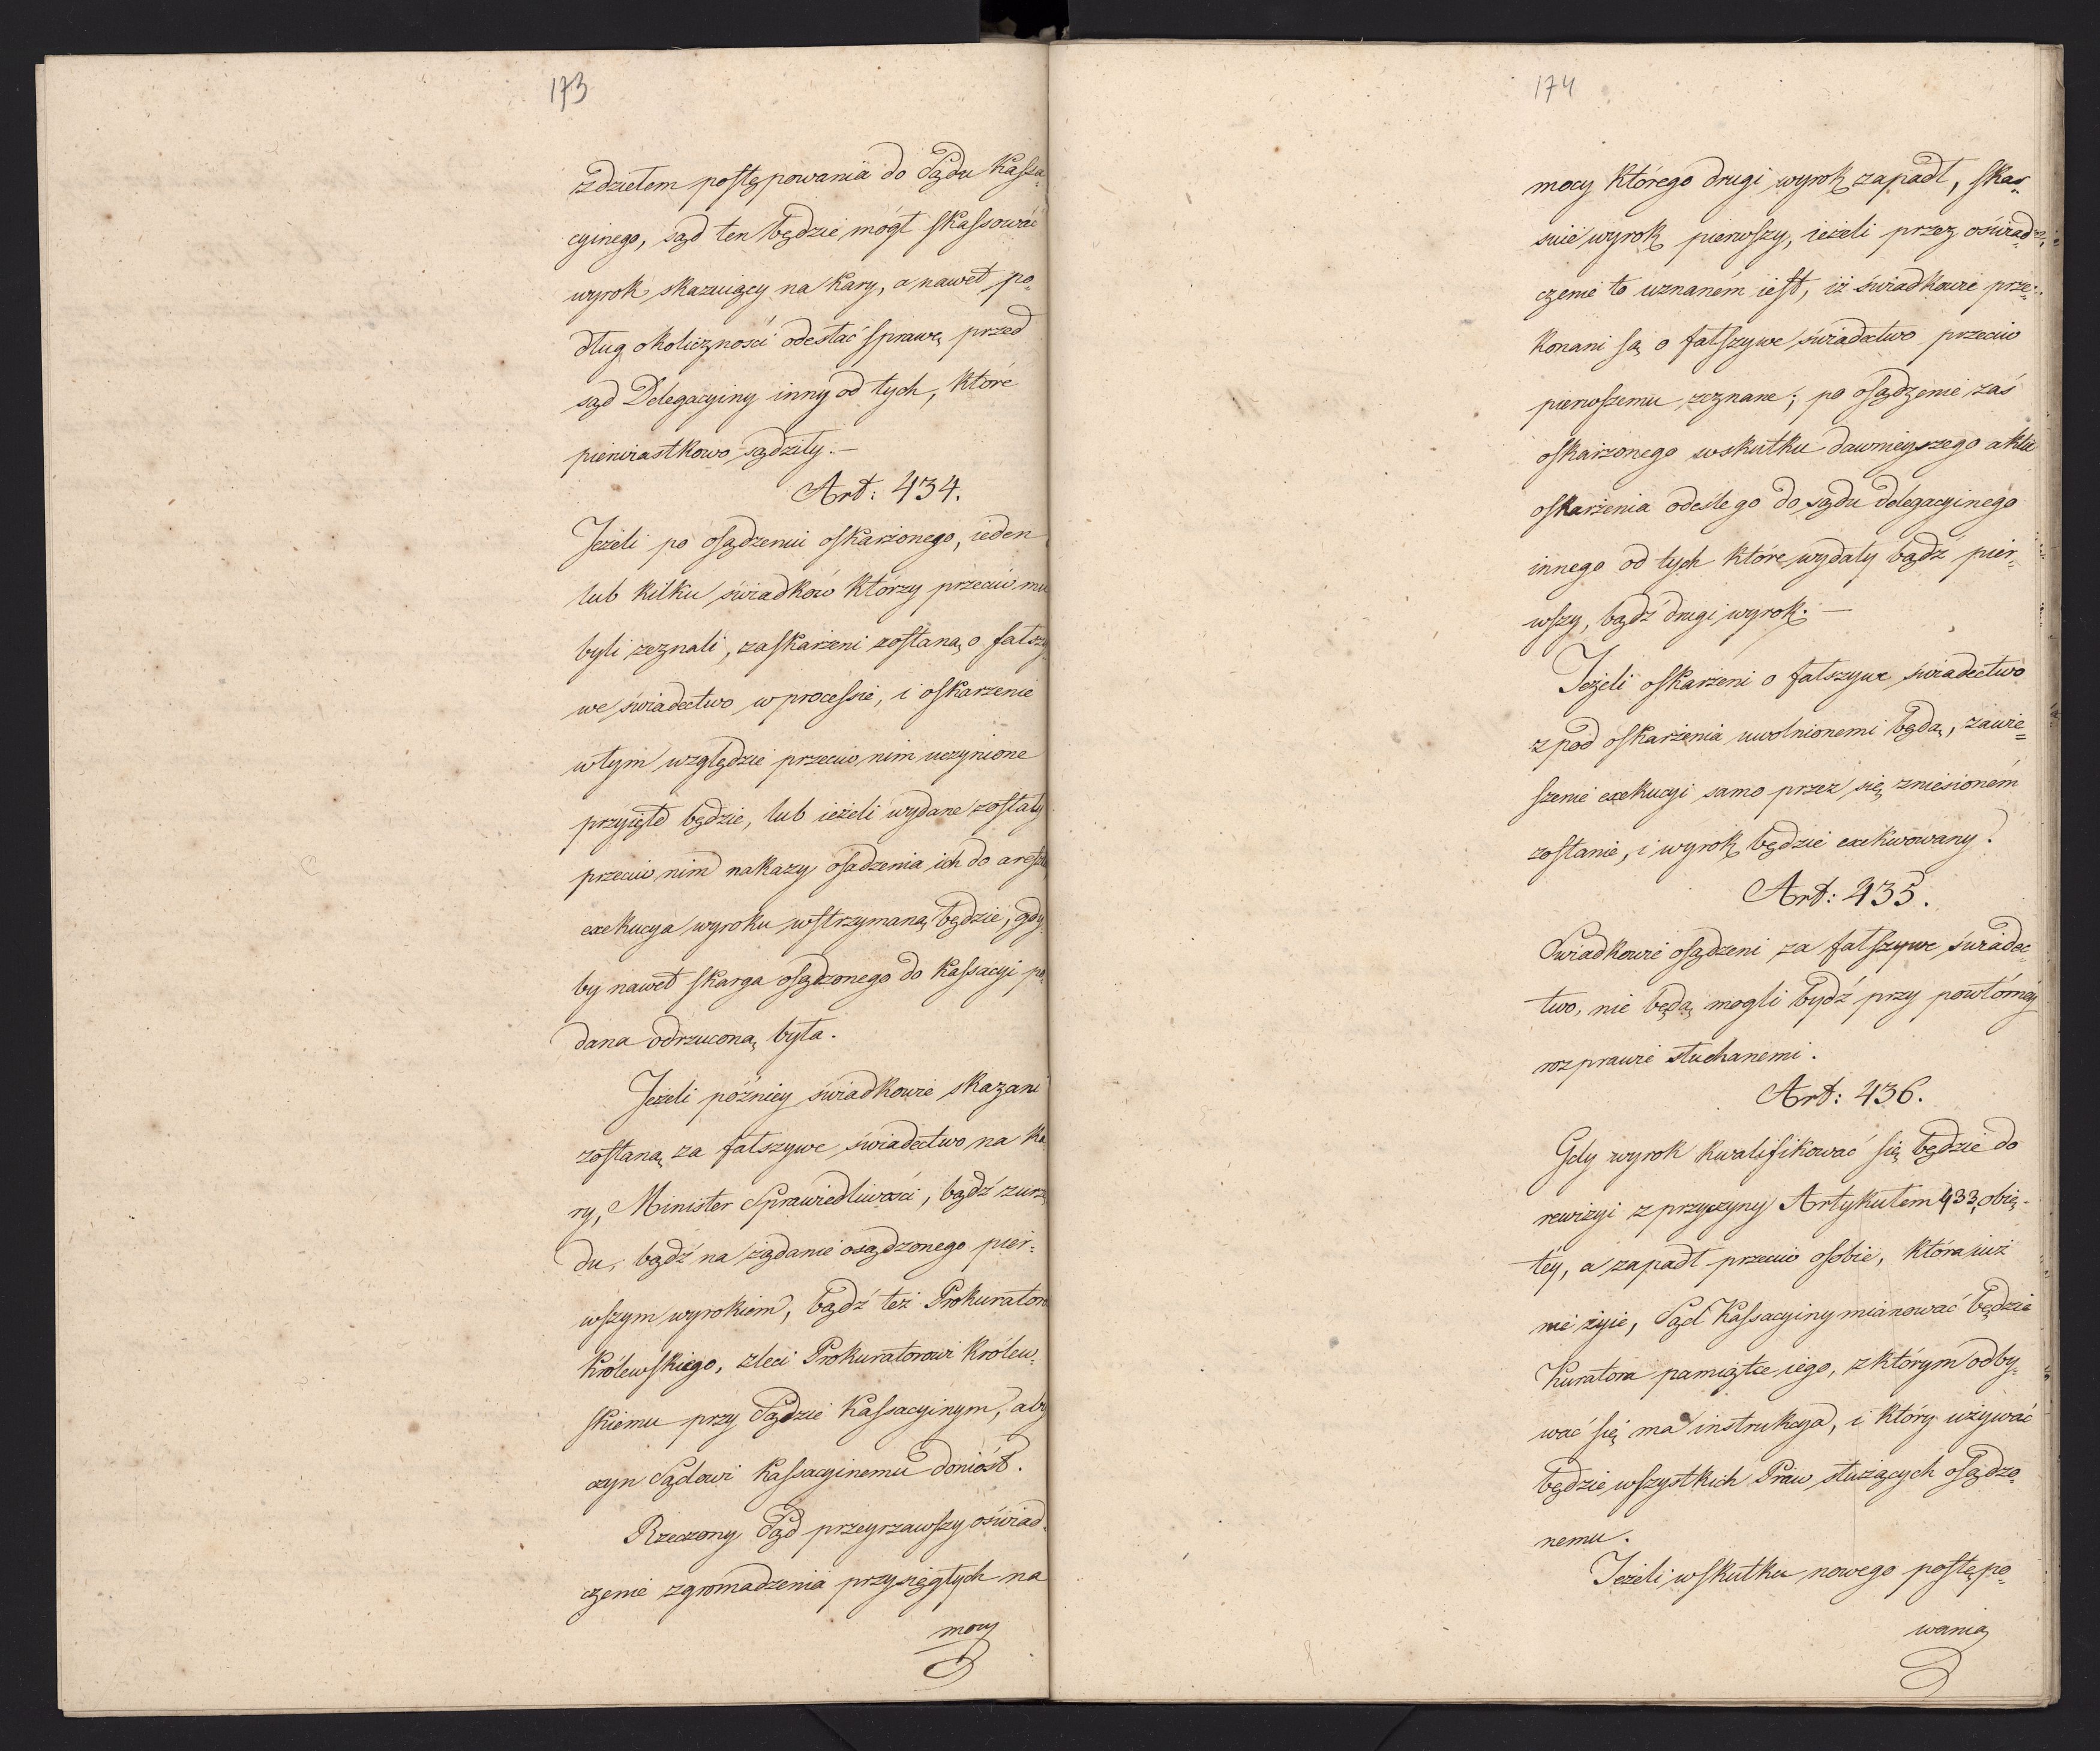 173
zdziełem postępowania do Sądu Kassa„
cyinego, sąd ten będzie mógł skassować
wyrok skazuiący na kary, a nawet po„
dług okoliczności odesłać sprawę przed
sąd Delegacyiny inny od tych, które
pierwiastkowo sądziły.—
Art: 434.
Jeżeli po osądzeniu oskarżonego, ieden
lub kilku świadków którzy przeciw mu
byli zeznali, zaskarżeni zostaną o fałszy
we świadectwo w processie, i oskarżenie
wtym względzie przeciw nim uczynione
przyięte będzie, lub ieżeli wydane zostały
przeciw nim nakazy osadzenia ich do aresztu
exekucya wyroku wstrzymaną będzie, gdy
by nawet skarga osądzonego do Kassacyi po„
dana odrzuconą była.
Jeżeli późniey świadkowie skazani
zostaną za fałszywe świadectwo na ka
ry, Minister Sprawiedliwości, bądź z urzę
du, bądź na żądanie osądzonego pier„
wszym wyrokiem, bądź też Prokuratora
Królewskiego, zleci Prokuratorowi Królew„
skiemu przy Sądzie Kassacyinym, aby
czyn Sądowi Kassacyinemu doniósł.
Rzeczony Sąd przeyrzawszy oświad„
czenie zgromadzenia przysięgłych na
mocy
174
mocy którego drugi wyrok zapadł, skas„
suie wyrok pierwszy, ieżeli przez oświad„
czenie to uznaném iest, iż świadkowie prze„
konani są o fałszywe świadectwo przeciw
pierwszemu zeznane; po osądzenie zaś
oskarżonego wskutku dawnieyszego aktu
oskarżenia odeśle go do sądu delegacyinego
innego od tych które wydały bądź pier„
wszy, bądź drugi wyrok.—
Jeżeli oskarżeni o fałszywe świadectwo
z pod oskarżenia uwolnionemi będą, zawie„
szenie exekucyi samo przez się zniesioném
zostanie, i wyrok będzie exekwowany.
Art: 435.
Swiadkowie osądzeni za fałszywe świadec„
two, nie będą mogli bydź przy powtórney
rozprawie słuchanemi.
Art: 436.
Gdy wyrok kwalifikować się będzie do
rewizyi z przyczyny Artykułem 433 obię„
tey, a zapadł przeciw osobie, która iuż
nie żyie, Sąd Kassacyiny mianować będzie
Kuratora pamiątce iego, z którym odby„
wać się ma instrukcya, i który używać
będzie wszystkich Praw służących osądzo„
nemu.
Jeżeli wskutku nowego postępo„
wania